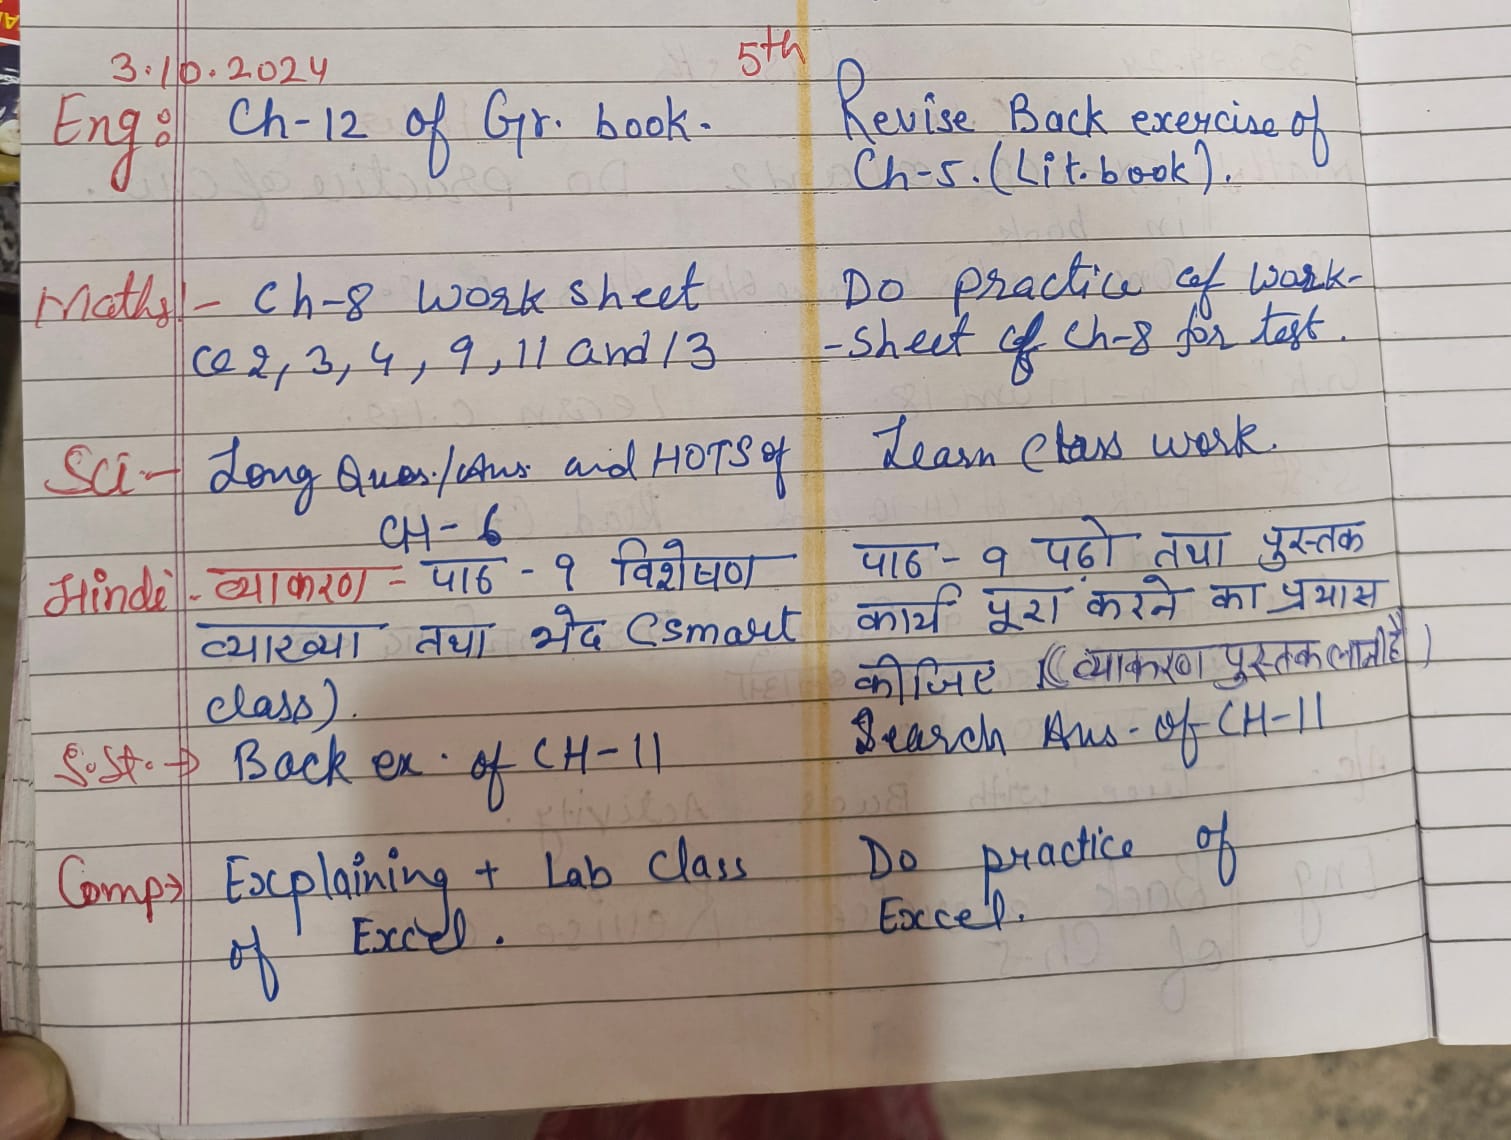 3.10.2024
5th
Eng: Ch-12 of Gr. book.
Revise Back exercise of
Ch-5. (Lit. book).
Maths:- Ch-8 Work sheet
Q 2, 3, 4, 9, 11 and 13
Do practice of work-
-sheet of Ch-8 for test.
Sci- Long Ques./Ans. and HOTS of
CH-6
Learn Class work.
Hindi - व्याकरण - पाठ - ९ विशेषण
व्याख्या तथा भेद (smart
class).
पाठ - ९ पढ़ो तथा पुस्तक
कार्य पूरा करने का प्रयास
कीजिए (व्याकरण पुस्तक लानी है)
S.St. → Back ex. of CH-11
Search Ans. of CH-11
Comp→ Explaining + Lab Class
of Excel.
Do practice of
Excel.